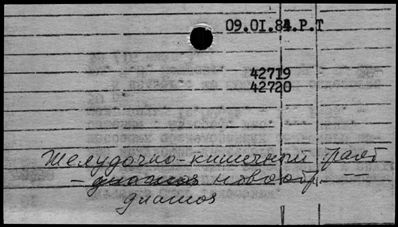 09.01.84.Р.Т
42719
42720
Желудочно-кишечный тракт
- диагноз новообр. —
диагноз